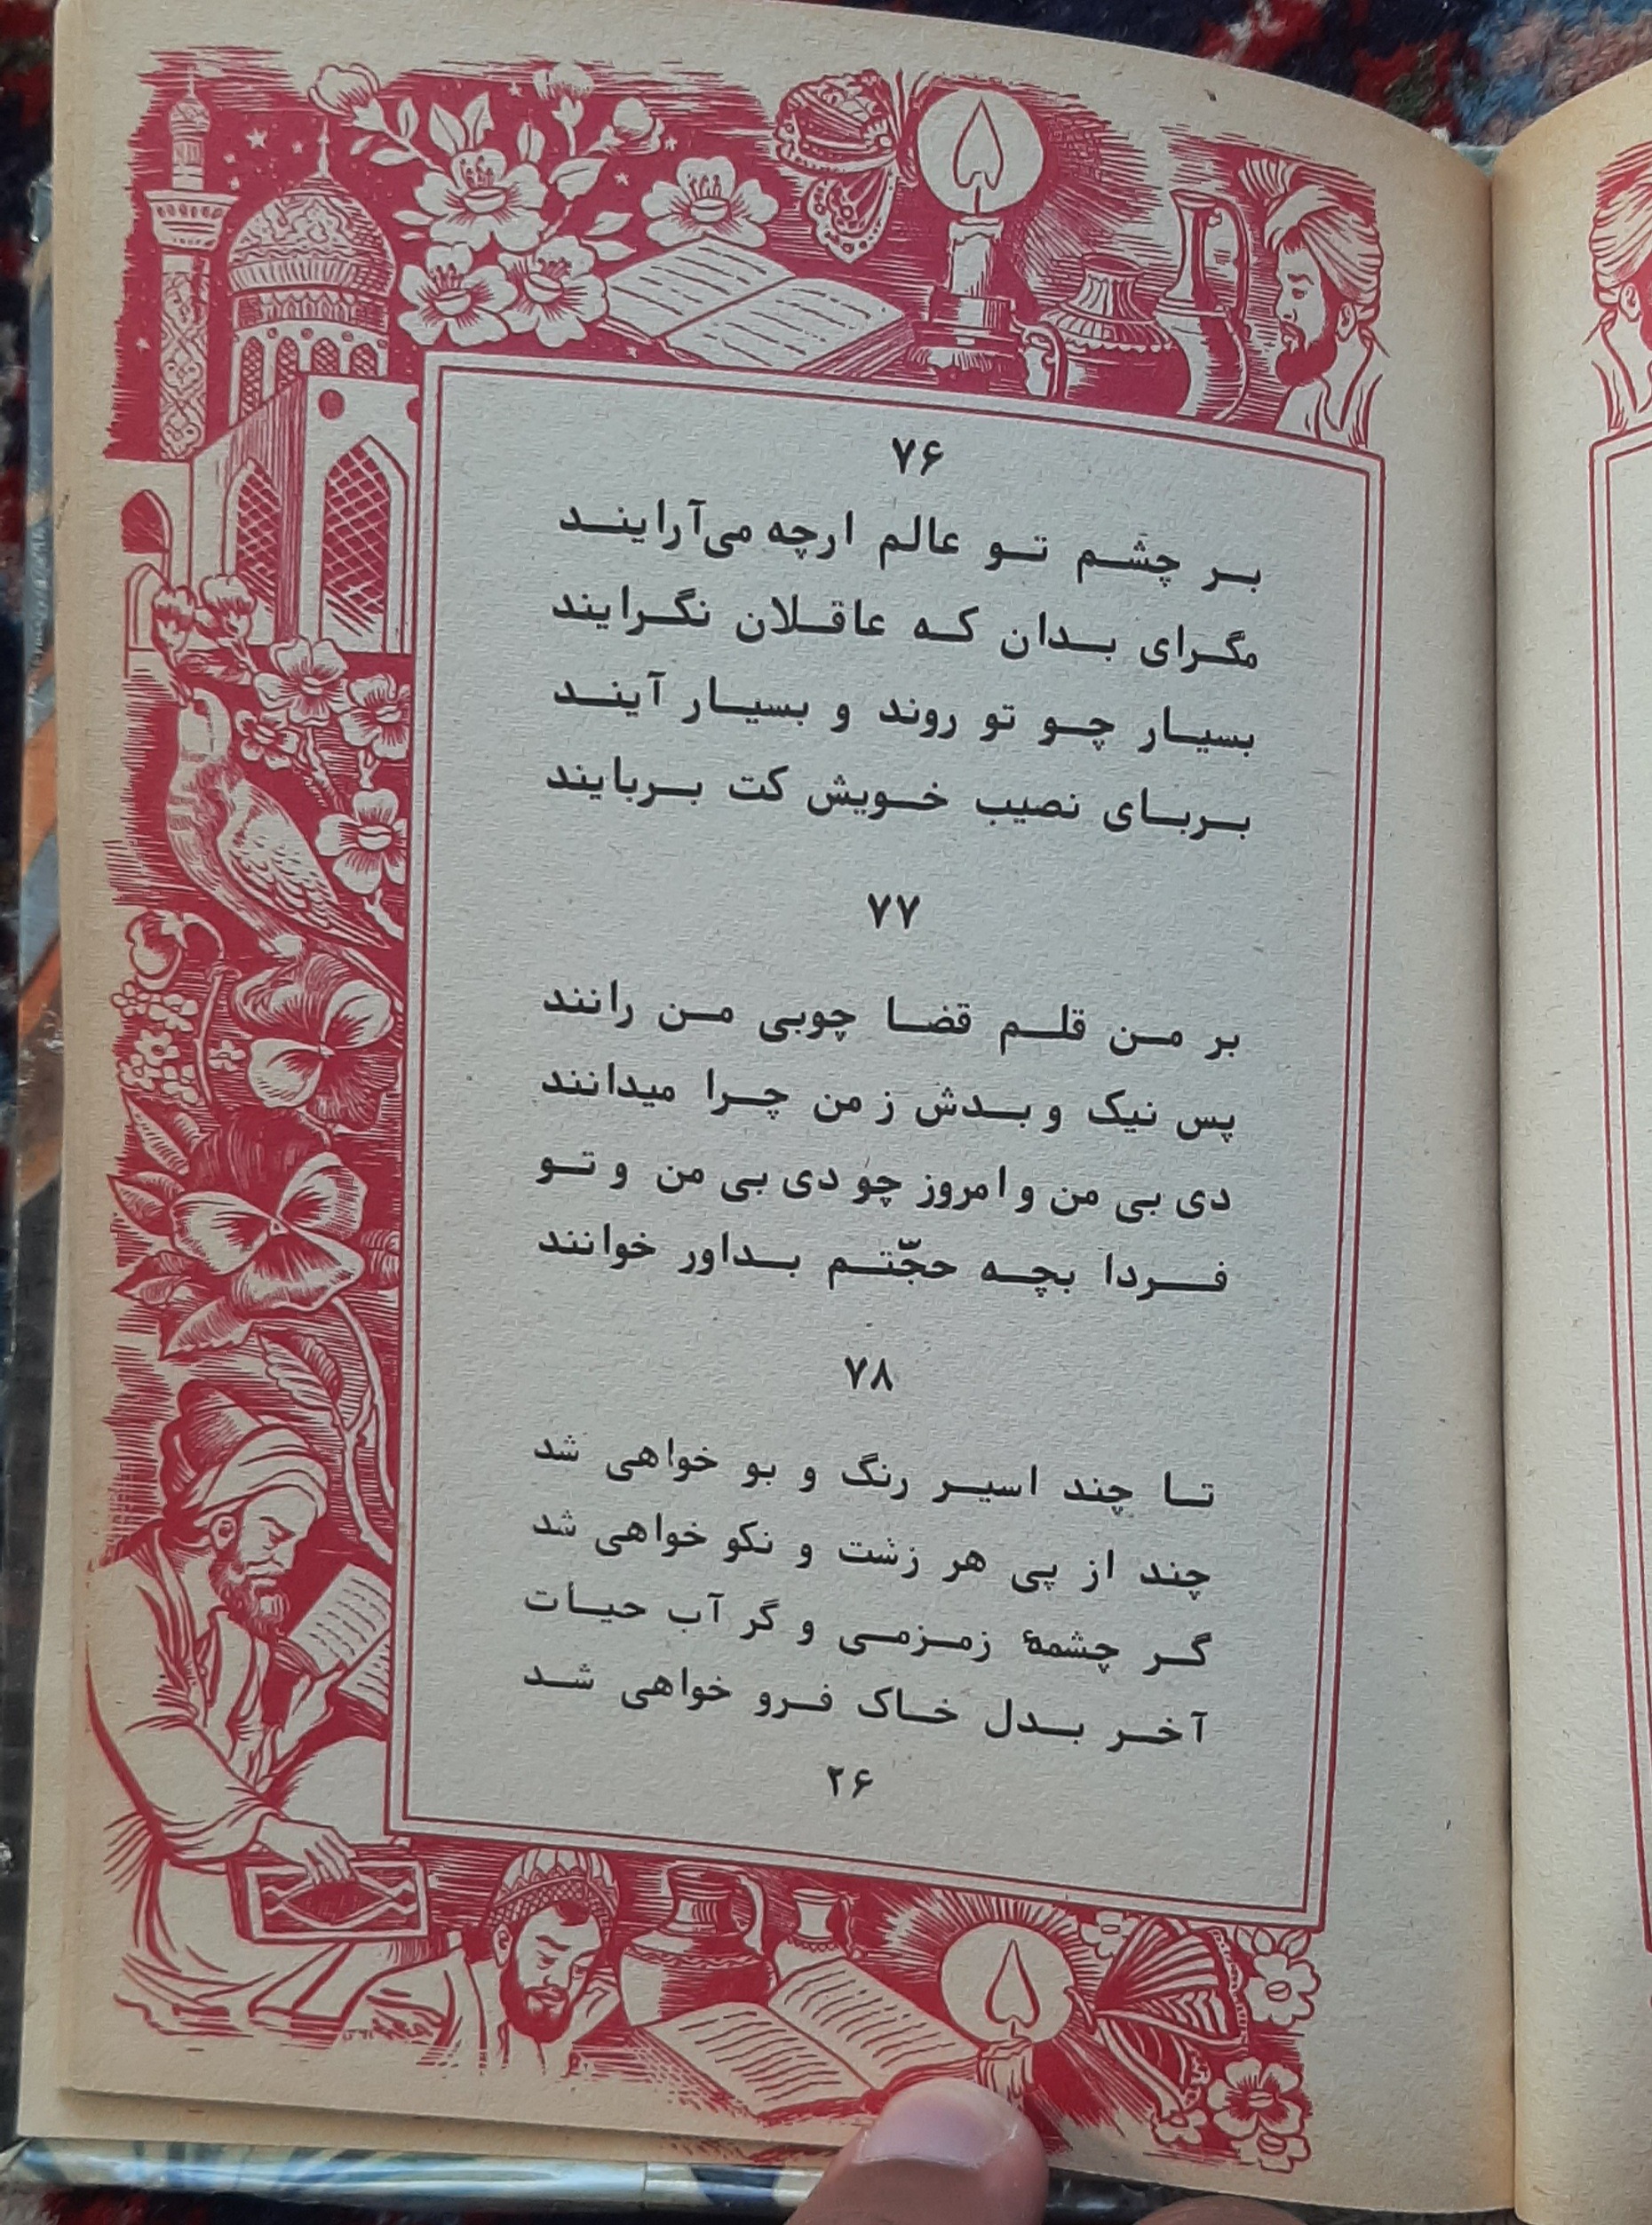 ۷۶
بر چشم تو عالم ارچه می‌آرایند
مگرای بدان که عاقلان نگرایند
بسیار چو تو روند و بسیار آیند
بربای نصیب خویش کت بربایند
۷۷
بر من قلم قضا چوبی من رانند
پس نیک و بدش ز من چرا میدانند
دی بی من و امروز چو دی بی من و تو
فردا بچه حجّتم بداور خوانند
۷۸
تا چند اسیر رنگ و بو خواهی شد
چند از پی هر زشت و نکو خواهی شد
گر چشمهٔ زمزمی و گر آب حیات
آخر بدل خاک فرو خواهی شد
۲۶